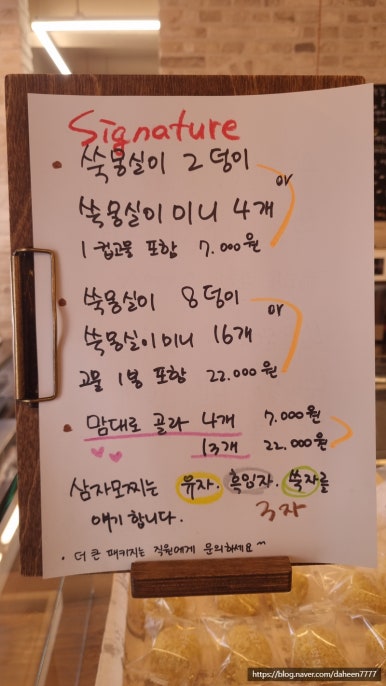 Signature
쑥몽실이 2덩이
or
쑥몽실이 미니 4개
1컵고물 포함 7.000원
쑥몽실이 8덩이
or
쑥몽실이 미니 16개
고물 1봉 포함 22.000원
맘대로 골라 4개 7.000원
13개 22.000원
삼자모찌는 유자. 흑임자. 쑥자를
얘기 합니다. 3자
더 큰 패키지는 직원에게 문의하세요^^
https://blog.naver.com/daheen7777